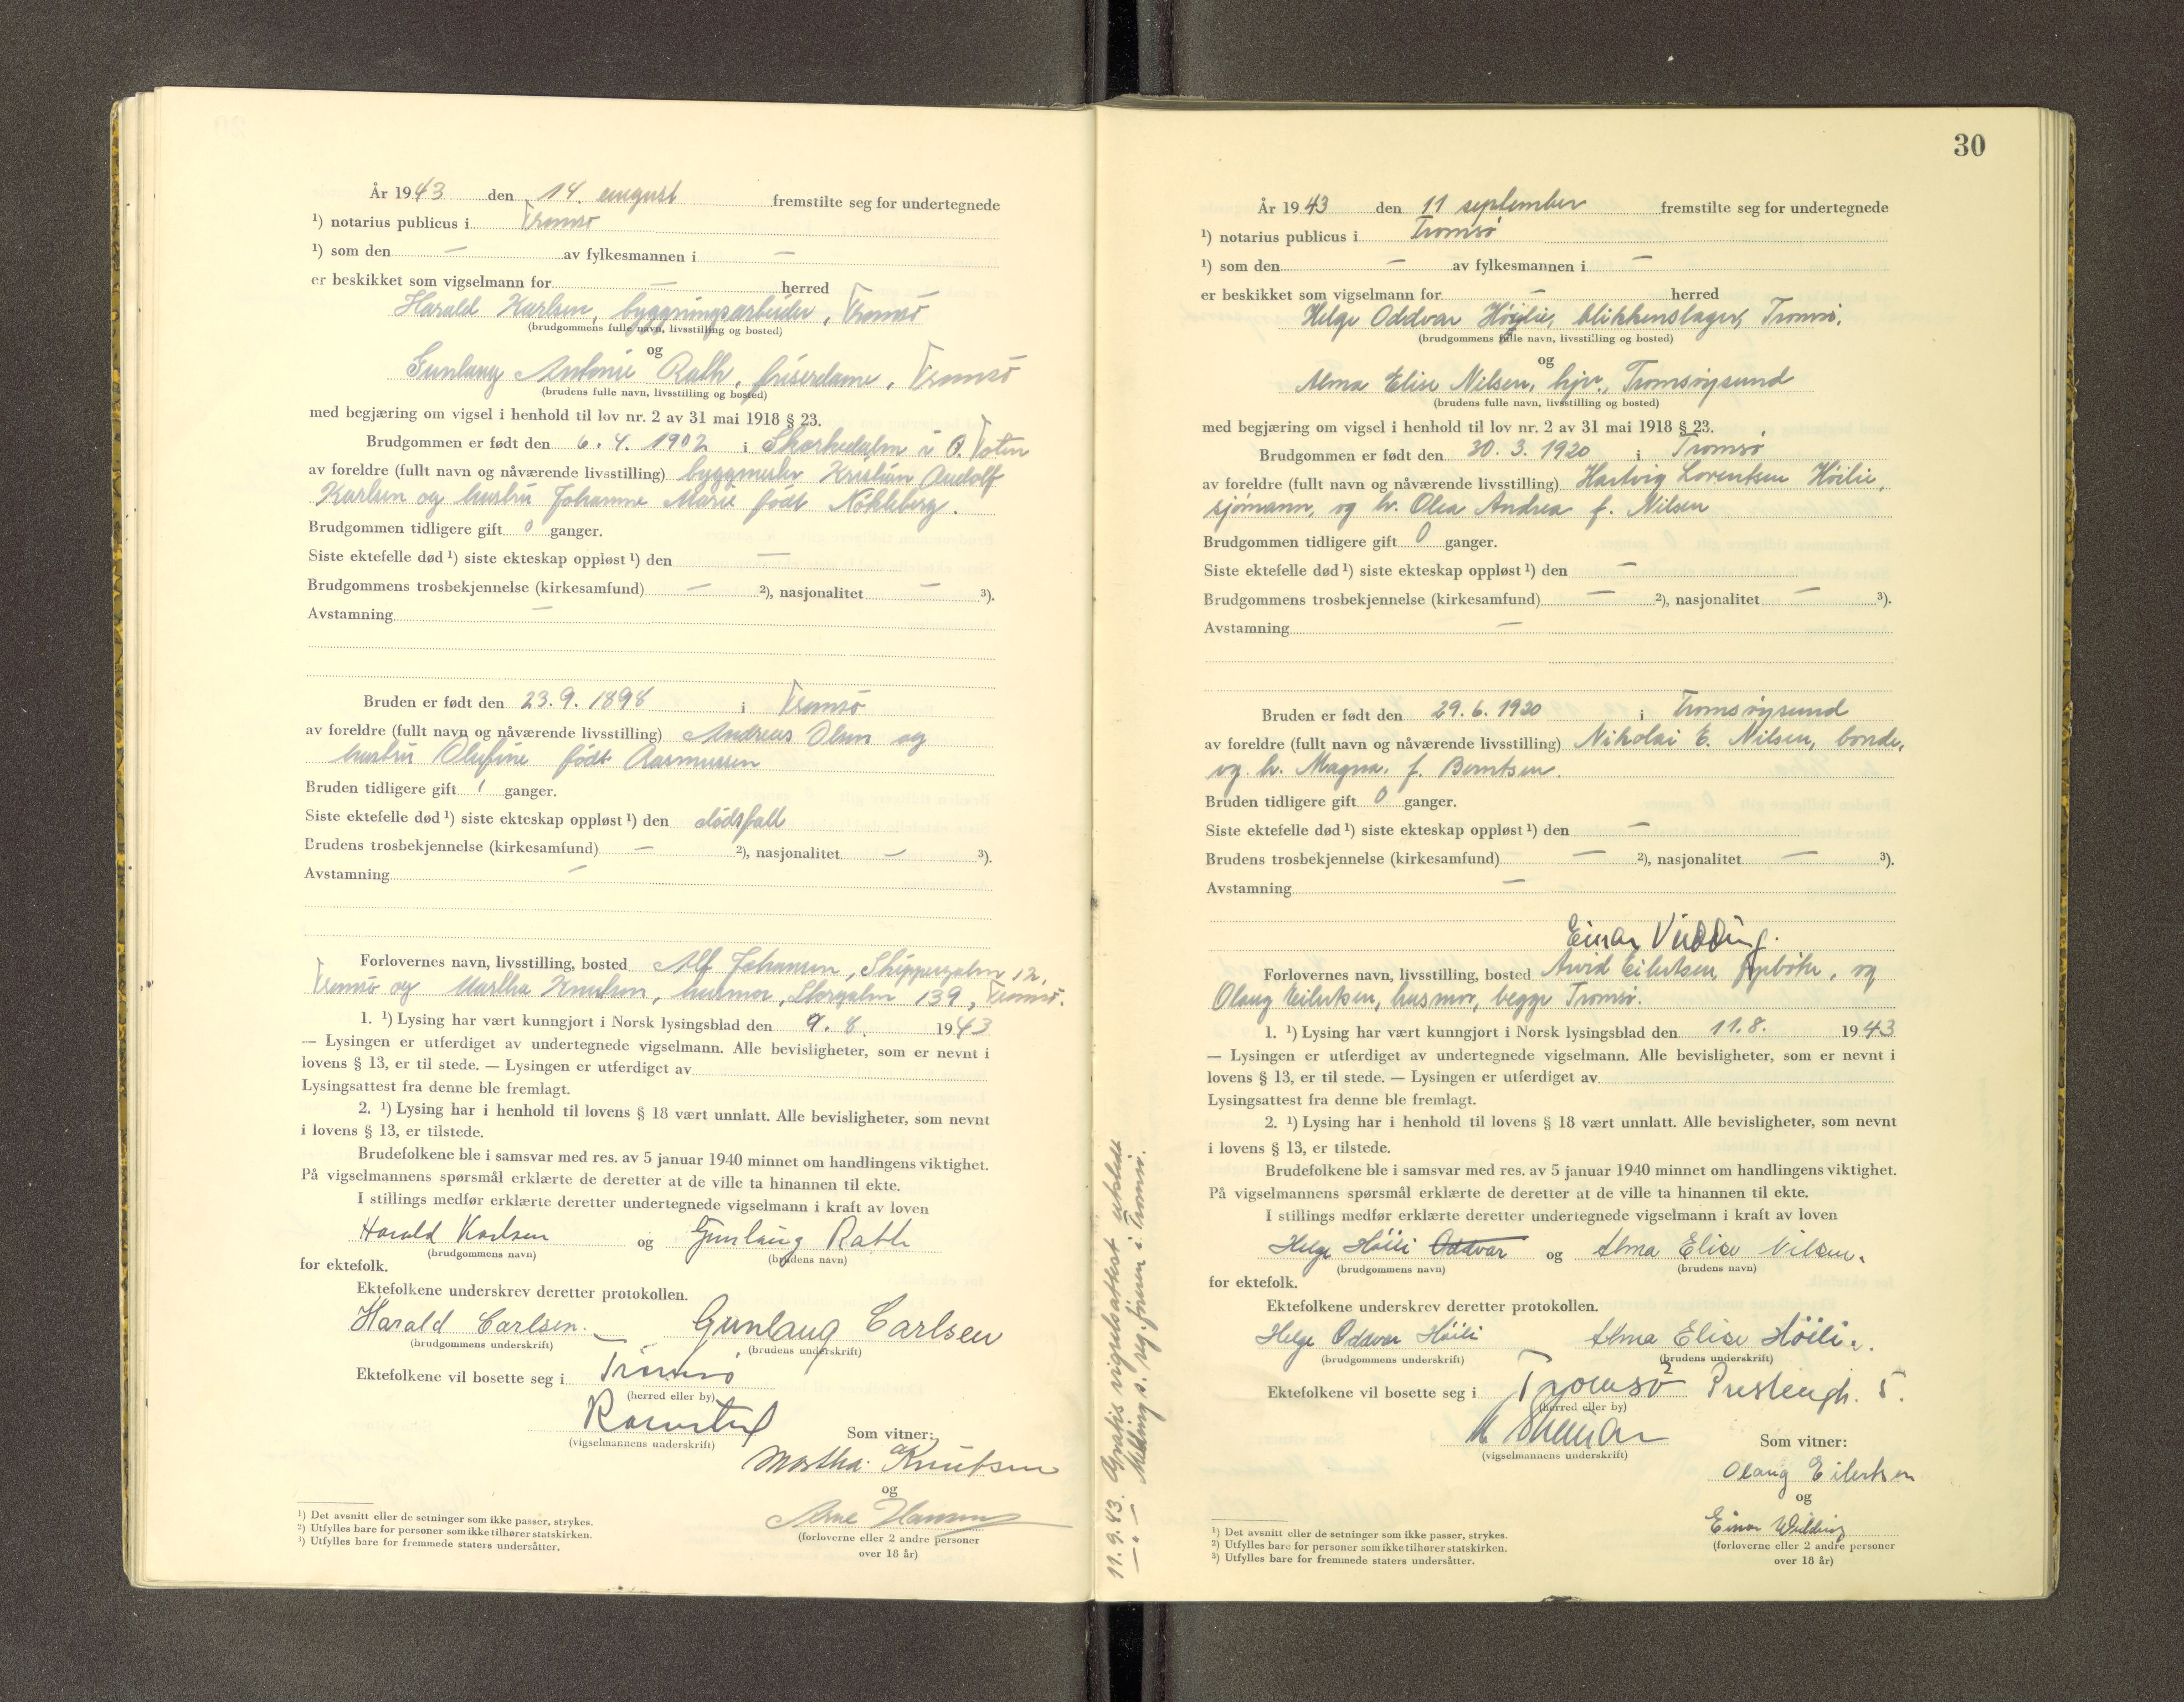 År 1943 den 14. august fremstilte seg for undertegnede
¹) notarius publicus i Tromsø
¹) som den — av fylkesmannen i —
er beskikket som vigselmann for — herred
Harald Karlsen, bygningsarbeider, Tromsø
(brudgommens fulle navn, livsstilling og bosted)
og
Gunlaug Antonie Rath, friserdame, Tromsø
(brudens fulle navn, livsstilling og bosted)
med begjæring om vigsel i henhold til lov nr. 2 av 31 mai 1918 § 23.
Brudgommen er født den 6.4.1902 i Skarhedalm i Ø. Toten
av foreldre (fullt navn og nåværende livsstilling) byggmester Kristian Rudolf
Karlsen og hustru Johanne Marie født Nøkleberg.
Brudgommen tidligere gift 0 ganger.
Siste ektefelle død ¹) siste ekteskap oppløst ¹) den —
Brudgommens trosbekjennelse (kirkesamfund) — ²), nasjonalitet — ³).
Avstamning —
Bruden er født den 23.9.1898 i Tromsø
av foreldre (fullt navn og nåværende livsstilling) Andreas Olsen og
hustru Olufine født Rasmussen
Bruden tidligere gift 1 ganger.
Siste ektefelle død ¹) siste ekteskap oppløst ¹) den dødsfall
Brudens trosbekjennelse (kirkesamfund) — ²), nasjonalitet — ³).
Avstamning —
Forlovernes navn, livsstilling, bosted Alf Johansen, Skippergaten 12,
Tromsø og Martha Knutsen, husmor, Storgaten 139, Tromsø.
1. ¹) Lysing har vært kunngjort i Norsk lysingsblad den 9.8. 1943
— Lysingen er utferdiget av undertegnede vigselmann. Alle bevisligheter, som er nevnt i
lovens § 13, er til stede. — Lysingen er utferdiget av
Lysingsattest fra denne ble fremlagt.
2. ¹) Lysing har i henhold til lovens § 18 vært unnlatt. Alle bevisligheter, som nevnt
i lovens § 13, er tilstede.
Brudefolkene ble i samsvar med res. av 5 januar 1940 minnet om handlingens viktighet.
På vigselmannens spørsmål erklærte de deretter at de ville ta hinannen til ekte.
I stillings medfør erklærte deretter undertegnede vigselmann i kraft av loven
Harald Karlsen og Gunlaug Rath
(brudgommens navn) (brudens navn)
for ektefolk.
Ektefolkene underskrev deretter protokollen.
Harald Carlsen. Gunlaug Carlsen
(brudgommens underskrift) (brudens underskrift)
Ektefolkene vil bosette seg i Tromsø
(herred eller by)
(vigselmannens underskrift) Som vitner:
Martha Knutsen
og
Arne Hansen
(forloverne eller 2 andre personer
over 18 år)
¹) Det avsnitt eller de setninger som ikke passer, strykes.
²) Utfylles bare for personer som ikke tilhører statskirken.
³) Utfylles bare for fremmede staters undersåtter.
11.9.43. Gratis vigselsattest utstedt
— " — Melding s. reg. føreren i Tromsø.
30
År 1943 den 11 september fremstilte seg for undertegnede
¹) notarius publicus i Tromsø
¹) som den — av fylkesmannen i —
er beskikket som vigselmann for — herred
Helge Oddvar Høilie, blikkenslager, Tromsø.
(brudgommens fulle navn, livsstilling og bosted)
og
Alma Elise Nilsen, hjv., Tromsøysund
(brudens fulle navn, livsstilling og bosted)
med begjæring om vigsel i henhold til lov nr. 2 av 31 mai 1918 § 23.
Brudgommen er født den 30.3.1920 i Tromsø
av foreldre (fullt navn og nåværende livsstilling) Hartvig Lorentsen Høilie,
sjømann, og h. Olea Andrea f. Nilsen
Brudgommen tidligere gift 0 ganger.
Siste ektefelle død ¹) siste ekteskap oppløst ¹) den —
Brudgommens trosbekjennelse (kirkesamfund) — ²), nasjonalitet — ³).
Avstamning —
Bruden er født den 29.6.1920 i Tromsøysund
av foreldre (fullt navn og nåværende livsstilling) Nikolai E. Nilsen, bonde,
og h. Magna f. Berntsen.
Bruden tidligere gift 0 ganger.
Siste ektefelle død ¹) siste ekteskap oppløst ¹) den —
Brudens trosbekjennelse (kirkesamfund) — ²), nasjonalitet — ³).
Avstamning —
Einar
Forlovernes navn, livsstilling, bosted Arvid Eilertsen, fyrbøter, og
Olaug Eilertsen, husmor, begge Tromsø.
1. ¹) Lysing har vært kunngjort i Norsk lysingsblad den 11.8. 1943
— Lysingen er utferdiget av undertegnede vigselmann. Alle bevisligheter, som er nevnt i
lovens § 13, er til stede. — Lysingen er utferdiget av
Lysingsattest fra denne ble fremlagt.
2. ¹) Lysing har i henhold til lovens § 18 vært unnlatt. Alle bevisligheter, som nevnt
i lovens § 13, er tilstede.
Brudefolkene ble i samsvar med res. av 5 januar 1940 minnet om handlingens viktighet.
På vigselmannens spørsmål erklærte de deretter at de ville ta hinannen til ekte.
I stillings medfør erklærte deretter undertegnede vigselmann i kraft av loven
Helge Høili Oddvar og Alma Elise Nilsen.
(brudgommens navn) (brudens navn)
for ektefolk.
Ektefolkene underskrev deretter protokollen.
Helge Oddvar Høili Alma Elise Høili.
(brudgommens underskrift) (brudens underskrift)
Ektefolkene vil bosette seg i Tromsø 5.
(herred eller by)
(vigselmannens underskrift) Som vitner:
Olaug Eilertsen
og
Einar
(forloverne eller 2 andre personer
over 18 år)
¹) Det avsnitt eller de setninger som ikke passer, strykes.
²) Utfylles bare for personer som ikke tilhører statskirken.
³) Utfylles bare for fremmede staters undersåtter.